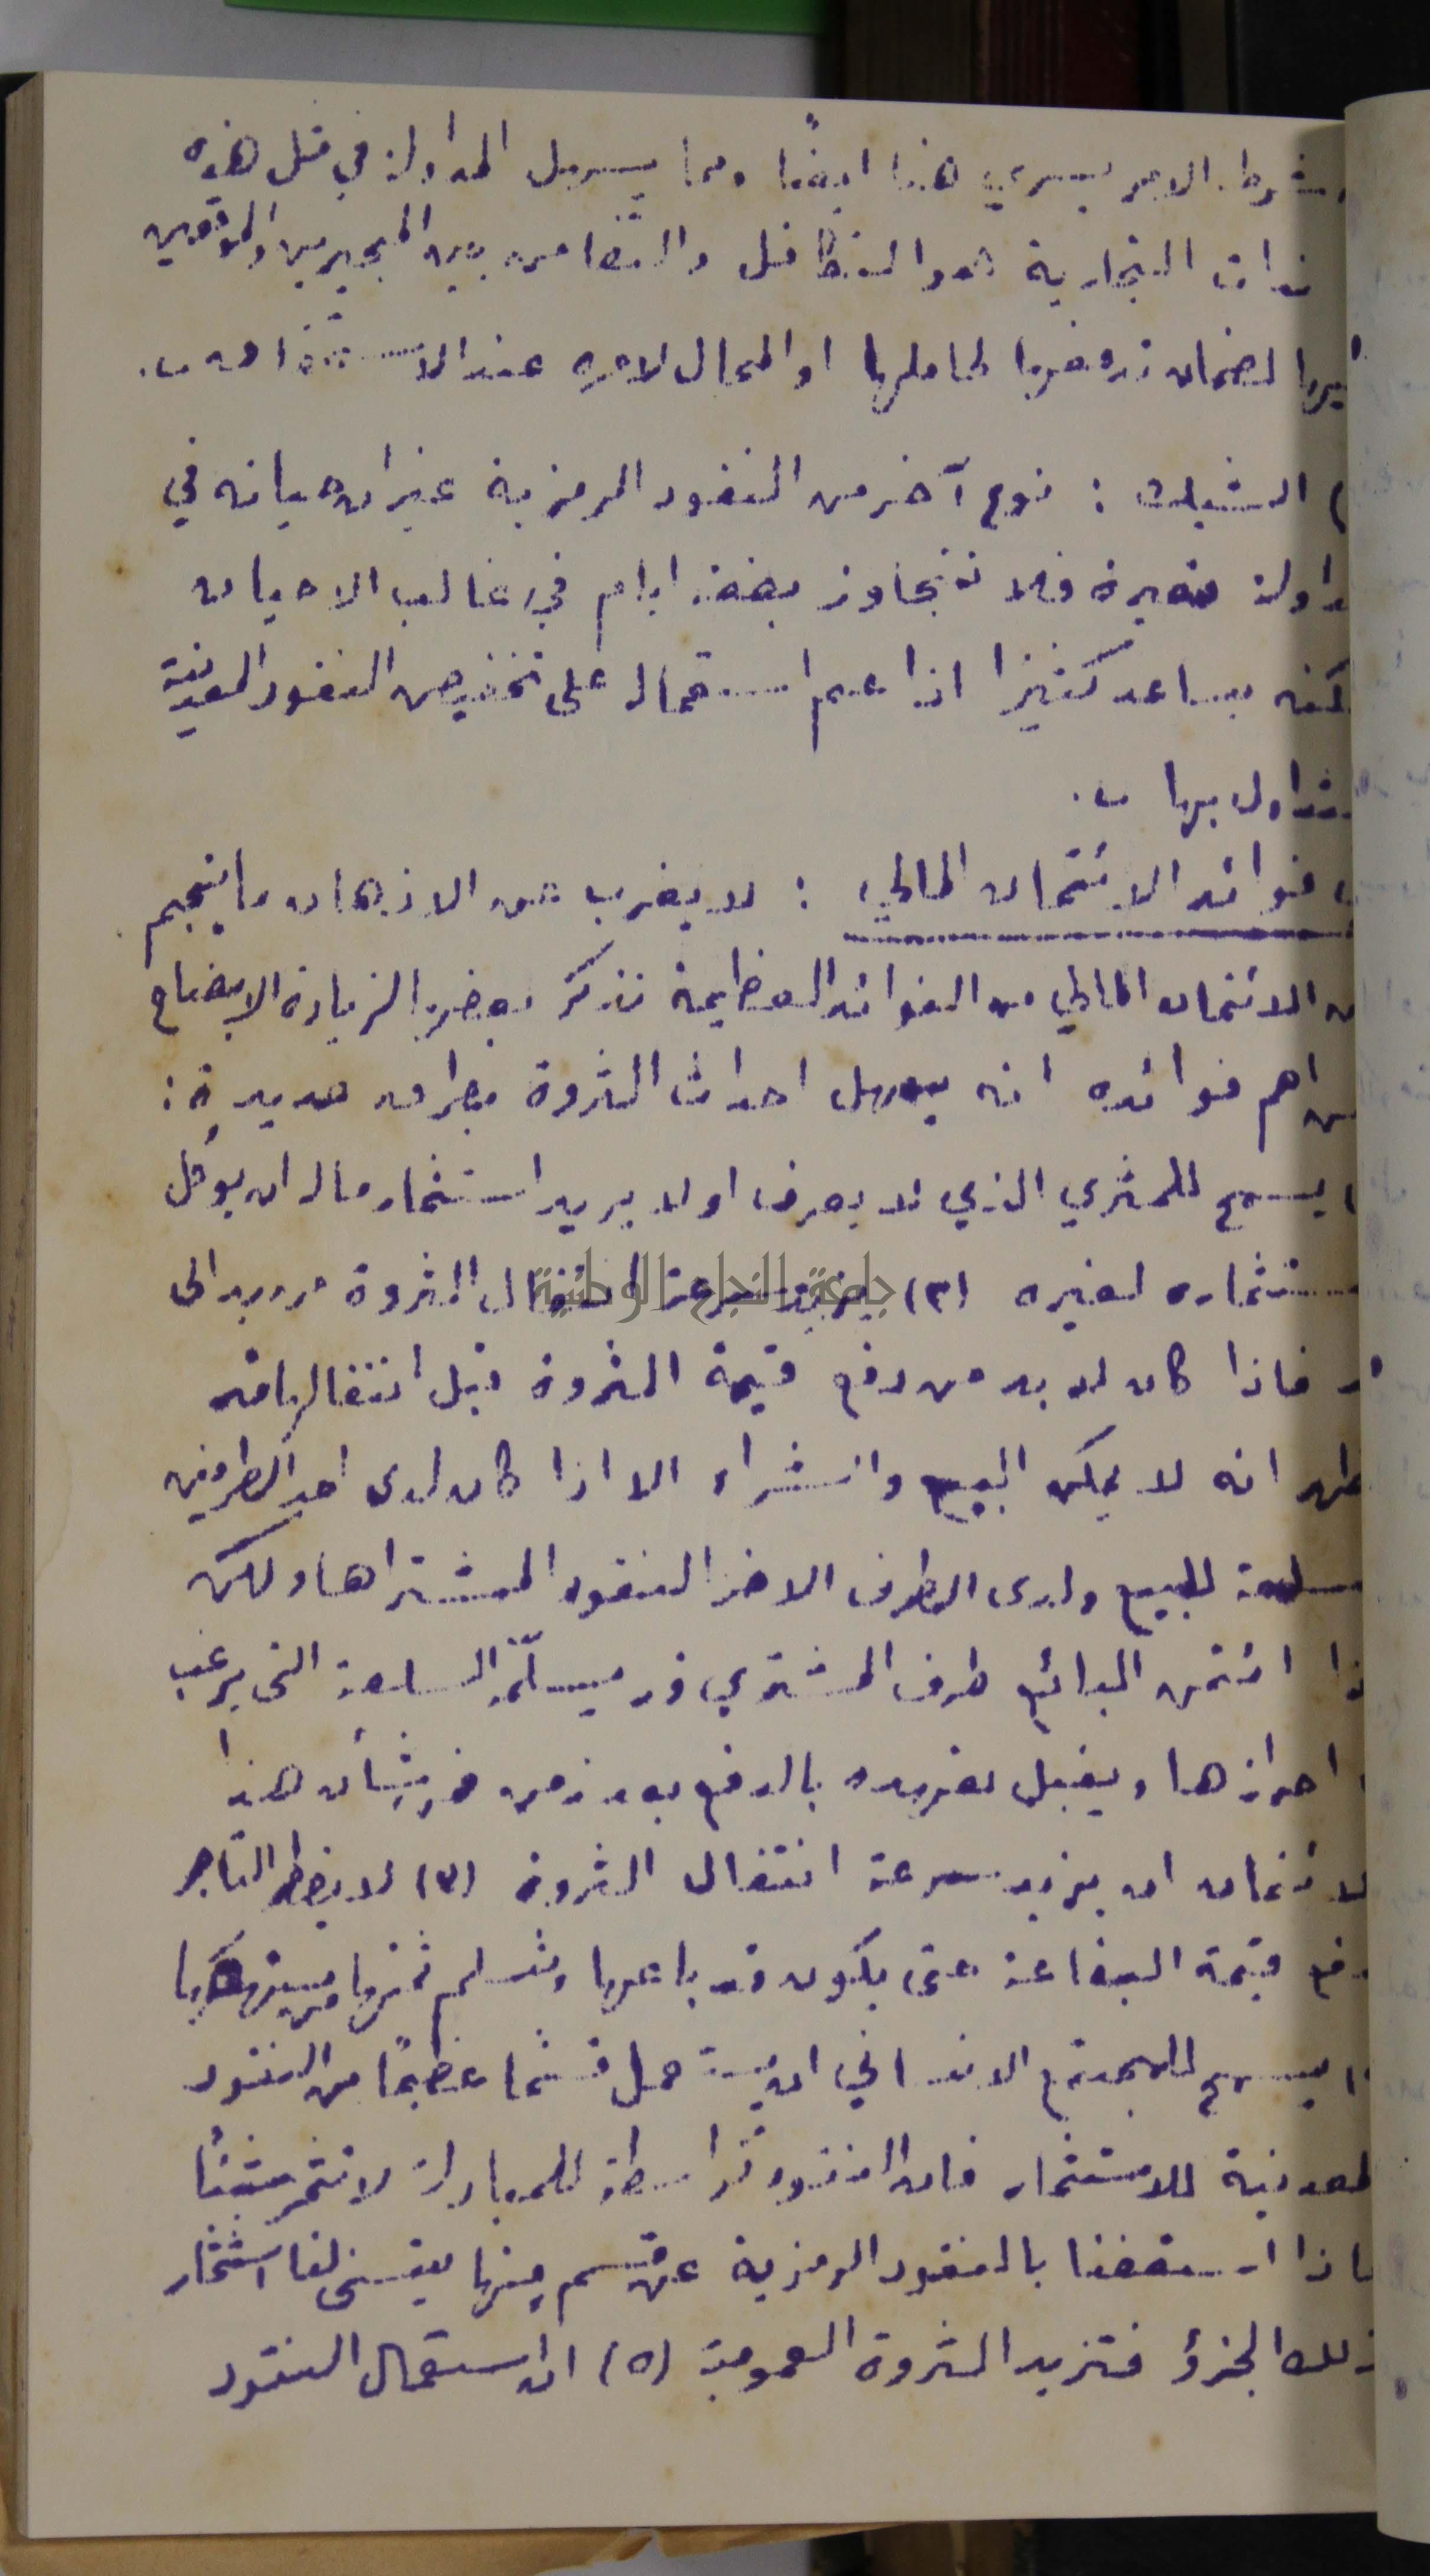 وشرط الامر يسري هنا ايضًا ومما يسهل المداولة في مثل هذه
ندات التجارية هو التكافل والتضامن بين المجيرين والموقعين
يرها لضمان تدوفعها لحاملها او المحال لامره عند الاستحقاق .
) الشيك : نوع آخر من النقود الرمزية غير ان حياته في
داولة قصيرة فلا تتجاوز بضعة ايام في غالب الاحيان
كنه يساعد كثيرا اذا عم استعماله على تخفيض النقود المعدنية
تداول بها .
فوائد الائتمان المالي : لا يغرب عن الاذهان ما ينجم
ن الائتمان المالي من الفوائد العظيمة نذكر بعضها لزيادة الايضاح
من اهم فوائده انه يسهل احداث الثروة بطرق عديدة :
يسمح للمثري الذي لا يعرف او لا يريد استثمار ماله ان يوكل
ستثماره لغيره (٢) يزيد سرعة انتقال الثروة من يد الى
د فاذا كان لا بد من دفع قيمة الثروة قبل انتقالها فقد
ظهر انه لا يمكن البيع والشراء الا اذا كان لدى احد الطرفين
سلعة للبيع ولدى الطرف الاخر النقود لمشتراها ولكن
ذا ائتمن البائع طرف المشتري فد ميسلّمه السلعة التي يرغب
احرازها ويقبل تعهده بالدفع بعد زمن فمن شأن هذا
لائتمان ان يزيد سرعة انتقال الثروة (٣) لا يضطر التاجر
دفع قيمة البضاعة حتى يكون قد باعها وتسلم ثمنها من مستهلكها
يسمح للمجتمع الانساني ان يستعمل قسما عظيمًا من النقود
لمعدنية للاستثمار فان النقود كواسطة للمبادلة لا تثمر شيئًا
فاذا استعضنا بالنقود الرمزية عن قسم منها يتسنى لنا استثمار
ذلك الجزؤ فتزيد الثروة العمومية (٥) ان استعمال النقود
جامعة النجاح الوطنية